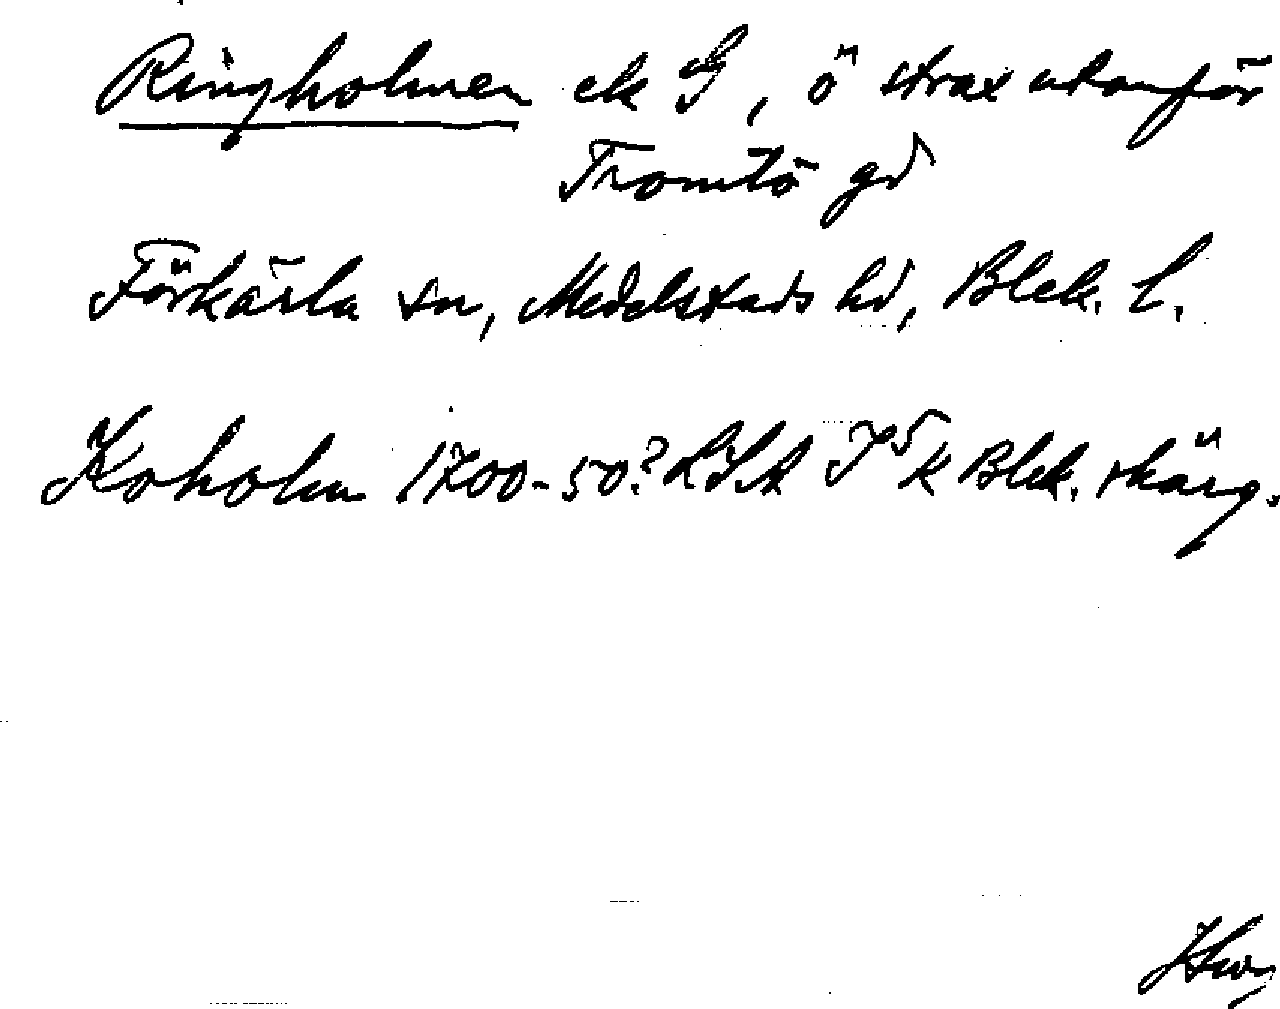 Ringholmen ek G, ö strax utanför
Tromtö gd
Förkärla sn, Medelstads hd, Blek. l.
Koholm 1700-50? LSA Blek. skärg.